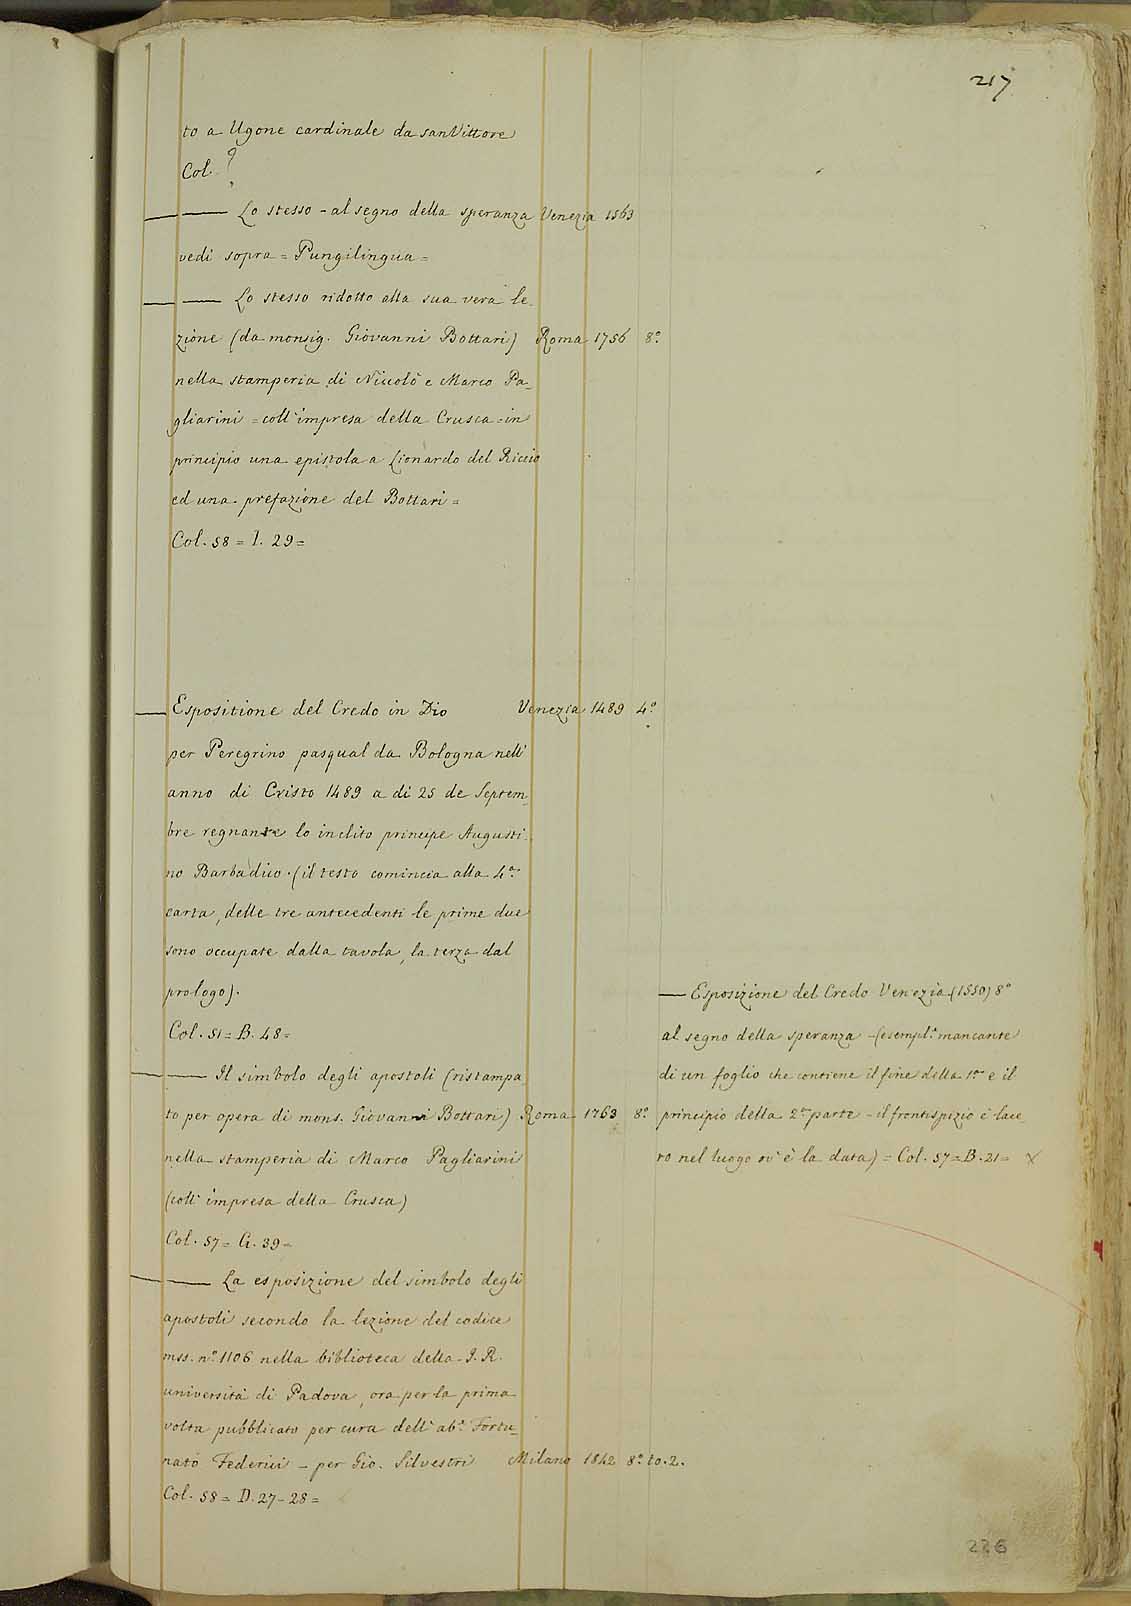 217
to a Ugone cardinale da san Vittore
Col. ?
— Lo stesso - al segno della speranza Venezia 1563
vedi sopra = Pungilingua =
— Lo stesso ridotto alla sua vera le_
zione (da monsig. Giovanni Bottari) Roma 1756 8.º
nella stamperia di Niccolò e Marco Pa_
gliarini = coll'impresa della Crusca = in
principio una epistola a Lionardo del Riccio
ed una prefazione del Bottari =
Col. 58 = I. 29 =
— Espositione del Credo in Dio Venezia 1489 4.º
per Peregrino pasqual da Bologna nell'
anno di Cristo 1489 a di 25 de Septem_
bre regnante lo inclito principe Augusti_
no Barbadico. (il testo comincia alla 4.ª
carta, delle tre antecedenti le prime due
sono occupate dalla tavola, la terza dal
prologo).
Col. 51 = B. 48 =
— Il simbolo degli apostoli (ristampa
to per opera di mons. Giovanni Bottari) Roma 1763 8.º
nella stamperia di Marco Pagliarini
(coll'impresa della Crusca)
Col. 57 = G. 39 =
— La esposizione del simbolo degli
apostoli secondo la lezione del codice
mss. nº 1106 nella biblioteca della I. R.
università di Padova, ora per la prima
volta pubblicato per cura dell'ab.e Fortu_
nato Federici - per Gio. Silvestri Milano 1842 8.º to. 2.
Col. 58 = D. 27 - 28 =
— Esposizione del Credo Venezia (1550) 8º
al segno della speranza - (esempl.e mancante
di un foglio che contiene il fine della 1.ª e il
principio della 2.ª parte - il frontispizio è lace_
ro nel luogo ov' è la data) = Col. 57 = B. 21 = X
226